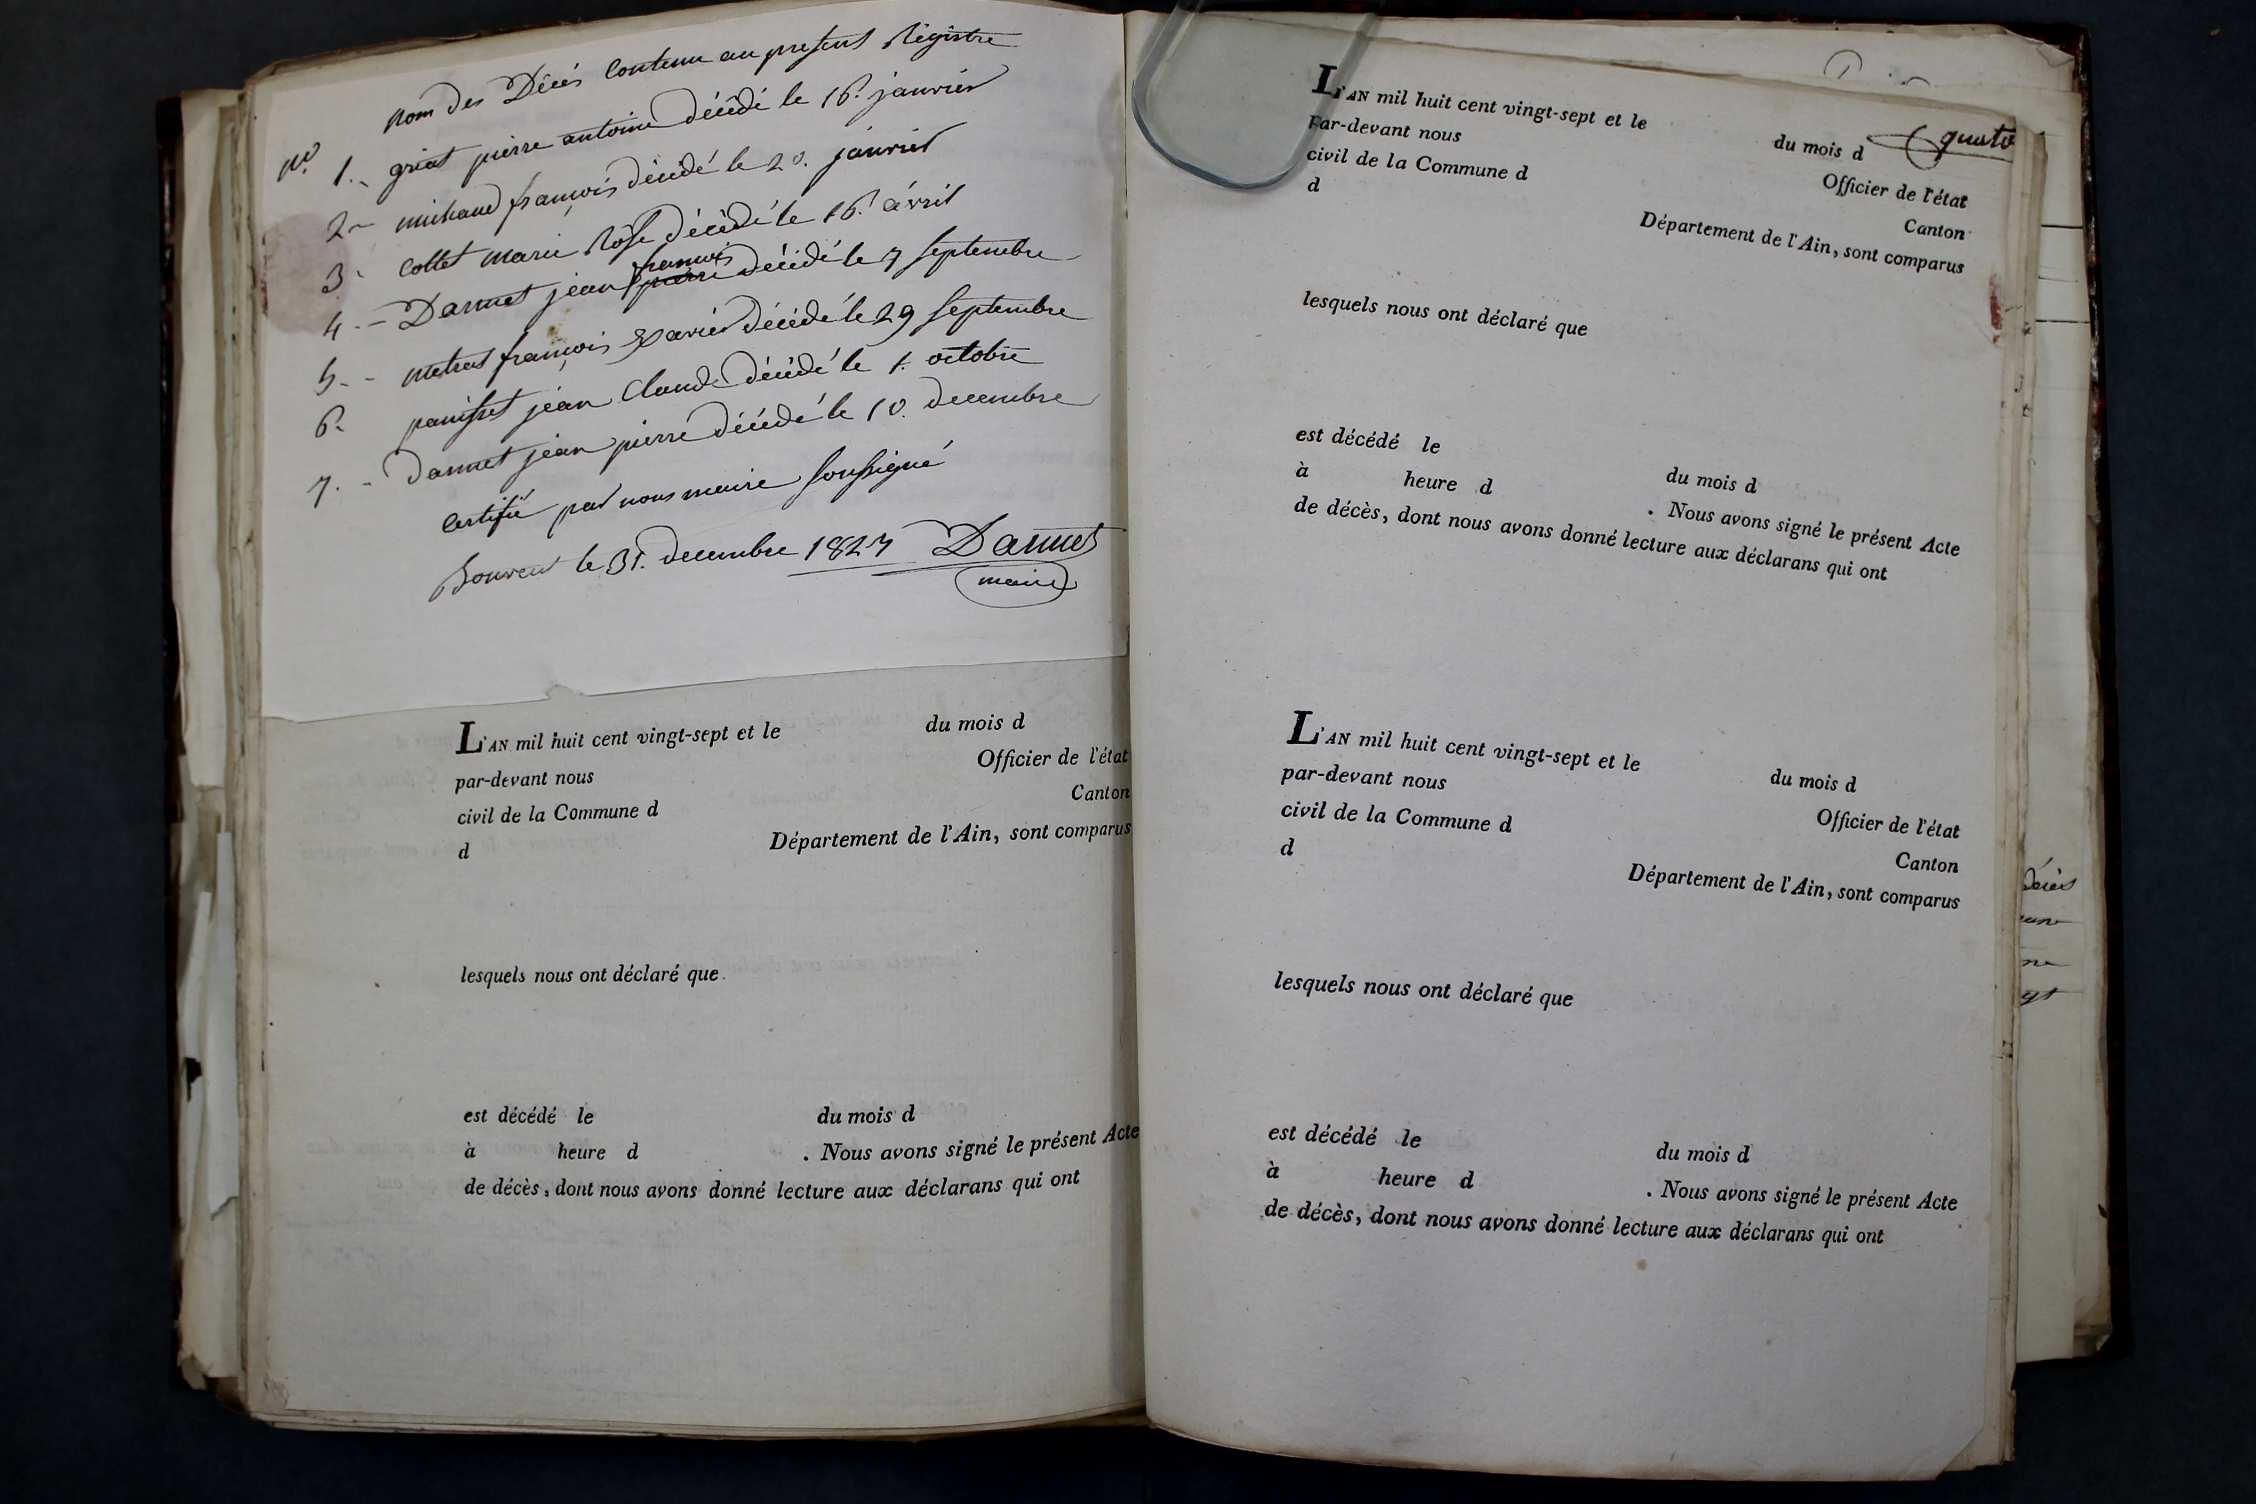 nom des Décés contenu au present Régistre
no. 1. - griat pierre antoine décédé le 16. janvier
2 - michaud françois décédé le 20. janvier
3 - Collet marie Rose décédé le 16. avril
4. - Dannet jean pierre françois décédé le 7 septembre
5. - metras françois Xavier décédé le 29 septembre
6. panisset jean Claude décédé le 1. octobre
7. - Dannet jean pierre décédé le 10. decembre
Certifié par nous maire soussigné
Bouvent le 31. decembre 1827 Dannet
maire
L'AN mil huit cent vingt-sept et le du mois d
par-devant nous Officier de l'état
civil de la Commune d Canton
d Département de l'Ain, sont comparus
lesquels nous ont déclaré que
est décédé le du mois d
à heure d . Nous avons signé le présent Acte
de décès, dont nous avons donné lecture aux déclarans qui ont
quatr
L'AN mil huit cent vingt-sept et le du mois d
par-devant nous Officier de l'état
civil de la Commune d Canton
d Département de l'Ain, sont comparus
lesquels nous ont déclaré que
est décédé le du mois d
à heure d . Nous avons signé le présent Acte
de décès, dont nous avons donné lecture aux déclarans qui ont
L'AN mil huit cent vingt-sept et le du mois d
par-devant nous Officier de l'état
civil de la Commune d Canton
d Département de l'Ain, sont comparus
lesquels nous ont déclaré que
est décédé le du mois d
à heure d . Nous avons signé le présent Acte
de décès, dont nous avons donné lecture aux déclarans qui ont